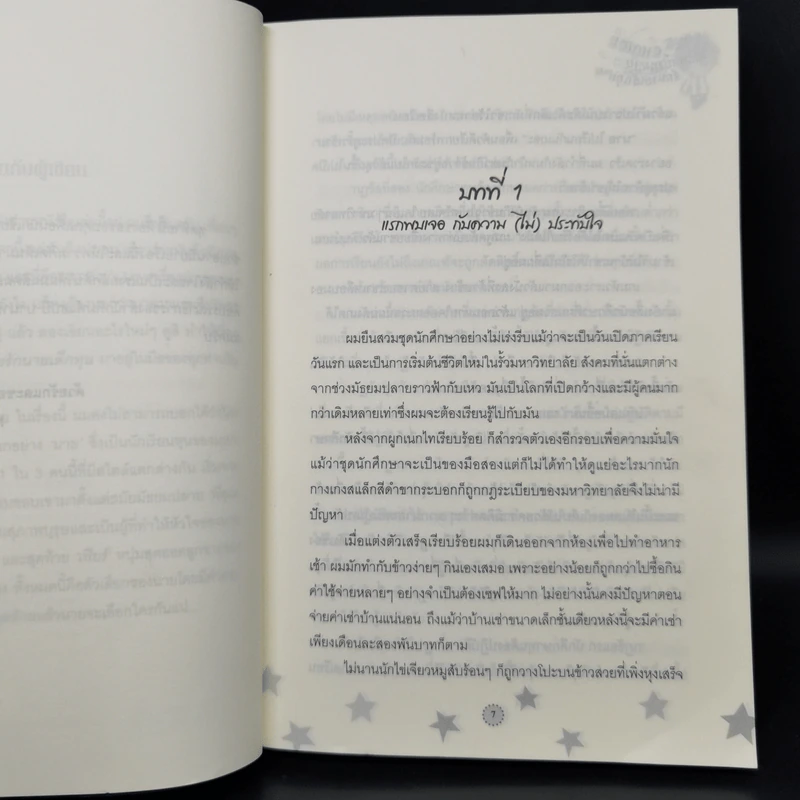 บทที่ 1
แรกพบเจอ กับความ (ไม่) ประทับใจ
ผมยืนสวมชุดนักศึกษาอย่างไม่เร่งรีบแม้ว่าจะเป็นวันเปิดภาคเรียน
วันแรก และเป็นการเริ่มต้นชีวิตใหม่ในรั้วมหาวิทยาลัย สังคมที่นั่นแตกต่าง
จากช่วงมัธยมปลายราวฟ้ากับเหว มันเป็นโลกที่เปิดกว้างและมีผู้คนมาก
กว่าเดิมหลายเท่าซึ่งผมจะต้องเรียนรู้ไปกับมัน
หลังจากผูกเนกไทเรียบร้อย ก็สำรวจตัวเองอีกรอบเพื่อความมั่นใจ
แม้ว่าชุดนักศึกษาจะเป็นของมือสองแต่ก็ไม่ได้ทำให้ดูแย่อะไรมากนัก
กางเกงสแล็กสีดำขากระบอกก็ถูกกฎระเบียบของมหาวิทยาลัยจึงไม่น่ามี
ปัญหา
เมื่อแต่งตัวเสร็จเรียบร้อยผมก็เดินออกจากห้องเพื่อไปทำอาหาร
เช้า ผมมักทำกับข้าวง่ายๆ กินเองเสมอ เพราะอย่างน้อยก็ถูกกว่าไปซื้อกิน
ค่าใช้จ่ายหลายๆ อย่างจำเป็นต้องเซฟให้มาก ไม่อย่างนั้นคงมีปัญหาตอน
จ่ายค่าเช่าบ้านแน่นอน ถึงแม้ว่าบ้านเช่าขนาดเล็กชั้นเดียวหลังนี้จะมีค่าเช่า
เพียงเดือนละสองพันบาทก็ตาม
ไม่นานนักไข่เจียวหมูสับร้อนๆ ก็ถูกวางโปะบนข้าวสวยที่เพิ่งหุงเสร็จ
7